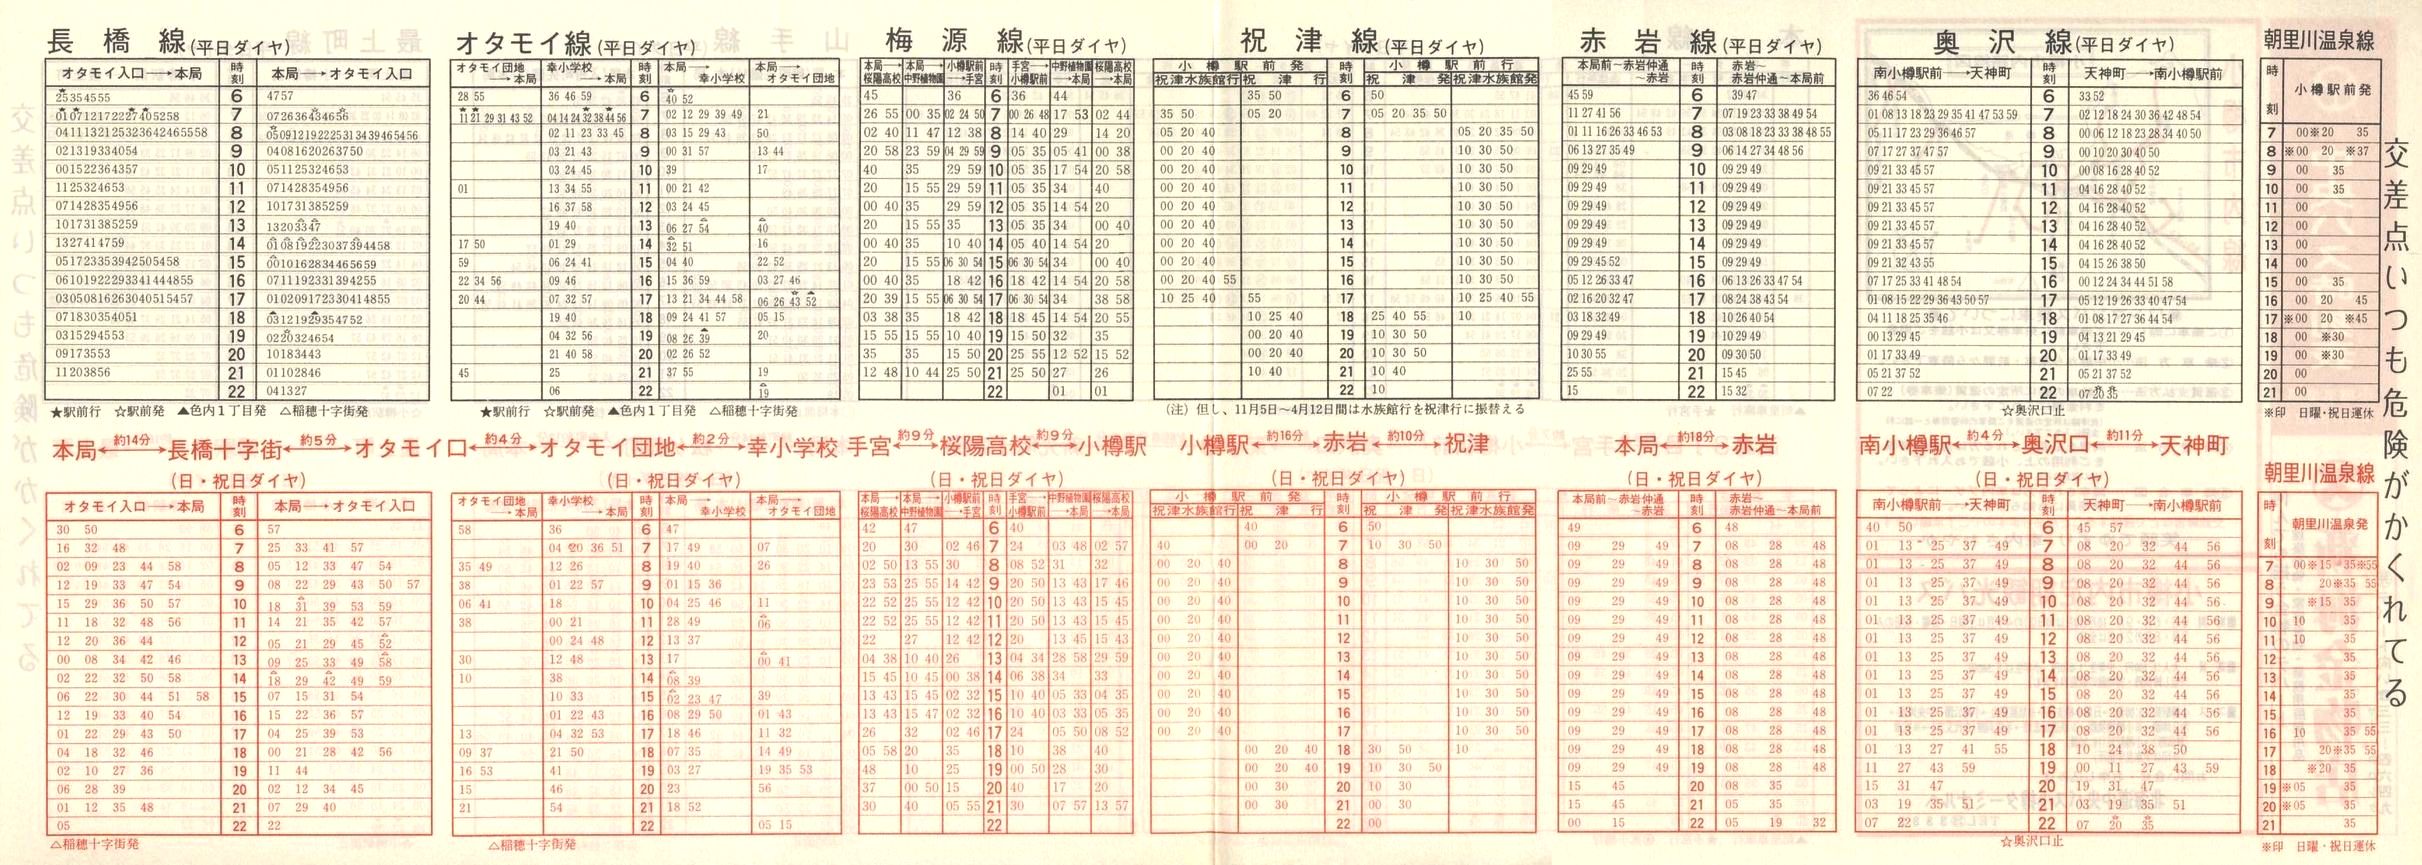 長橋線(平日ダイヤ)
オタモイ入口→本局 時刻 本局→オタモイ入口
25354555 6 4757
010712172227405258 7 072636434656
04111321253236424655​58 8 05091219222531343946​5456
021319334054 9 04081620263750
001522364357 10 051125324653
1125324653 11 071428354956
071428354956 12 101731385259
101731385259 13 13203347
1327414759 14 010819223037394458
051723353942505458 15 001016283446​5659
061019222933414448​55 16 071119233139​4255
030508162630405154​57 17 010209172330414855
071830354051 18 031219293547​52
0315294553 19 0220324654
09173553 20 10183443
11203856 21 01102846
22 041327
★駅前行 ☆駅前発 ▲色内1丁目発 △稲穂十字街発
オタモイ線(平日ダイヤ)
オタモイ団地→本局 幸小学校→本局 時刻 本局→幸小学校 本局→オタモイ団地
28 55 36 46 59 6 40 52
11 21 29 31 43 52 04 14 24 32 38 44 56 7 02 12 29 39 49 21
02 11 23 33 45 8 03 15 29 43 50
03 21 43 9 00 31 57 13 44
03 24 45 10 39 17
01 13 34 55 11 00 21 42
16 37 58 12 03 24 45
19 40 13 06 27 54 40
17 50 01 29 14 32 51 16
59 06 24 41 15 04 40 22 52
22 34 56 09 46 16 15 36 59 03 27 46
20 44 07 32 57 17 13 21 34 44 58 06 26 43 52
19 40 18 09 24 41 57 05 15
04 32 56 19 08 26 39 20
21 40 58 20 02 26 52
45 25 21 37 55 19
06 22 19
★駅前行 ☆駅前発 ▲色内1丁目発 △稲穂十字街発
梅源線(平日ダイヤ)
本局→桜陽高校 本局→中野植物園 小樽駅前→手宮 時刻 手宮→小樽駅前 中野植物園→本局 桜陽高校→本局
45 36 6 36 44
26 55 00 35 02 24 50 7 00 26 48 17 53 02 44
02 40 11 47 12 38 8 14 40 29 14 20
20 58 23 59 04 29 59 9 05 35 05 41 00 38
40 35 29 59 10 05 35 17 54 20 58
20 15 55 29 59 11 05 35 34 40
00 40 35 29 59 12 05 35 14 54 20
20 15 55 35 13 05 35 34 00 40
00 40 35 10 40 14 05 40 14 54 20
20 15 55 06 30 54 15 06 30 54 34 00 40
00 40 35 18 42 16 18 42 14 54 20 58
20 39 15 55 06 30 54 17 06 30 54 34 38 58
03 38 35 18 42 18 18 45 14 54 20 55
15 55 15 55 10 40 19 15 50 32 35
35 35 15 50 20 25 55 12 52 15 52
12 48 10 44 25 50 21 25 50 27 26
22 01 01
祝津線(平日ダイヤ)
小樽駅前発 時刻 小樽駅前行
祝津水族館行 祝津行 祝津発 祝津水族館発
35 50 6 50
35 50 05 20 7 05 20 35 50
05 20 40 8 05 20 35 50
00 20 40 9 10 30 50
00 20 40 10 10 30 50
00 20 40 11 10 30 50
00 20 40 12 10 30 50
00 20 40 13 10 30 50
00 20 40 14 10 30 50
00 20 40 15 10 30 50
00 20 40 55 16 10 30 50
10 25 40 55 17 10 25 40 55
10 25 40 18 25 40 55 10
00 20 40 19 10 30 50
00 20 40 20 10 30 50
10 40 21 10 40
22 10
(注)但し、11月5日〜4月12日間は水族館行を祝津行に振替える
赤岩線(平日ダイヤ)
本局前〜赤岩仲通〜赤岩 時刻 赤岩〜赤岩仲通〜本局前
45 59 6 39 47
11 27 41 56 7 07 19 23 33 38 49 54
01 11 16 26 33 46 53 8 03 08 18 23 33 38 48 55
06 13 27 35 49 9 06 14 27 34 48 56
09 29 49 10 09 29 49
09 29 49 11 09 29 49
09 29 49 12 09 29 49
09 29 49 13 09 29 49
09 29 49 14 09 29 49
09 29 45 52 15 09 29 49
05 12 26 33 47 16 06 13 26 33 47 54
02 16 20 32 47 17 08 24 38 43 54
03 18 32 49 18 10 26 40 54
09 29 49 19 10 29 49
10 30 55 20 09 30 50
25 55 21 15 45
15 22 15 32
奥沢線(平日ダイヤ)
南小樽駅前→天神町 時刻 天神町→南小樽駅前
36 46 54 6 33 52
01 08 13 18 23 29 35 41 47 53 59 7 02 12 18 24 30 36 42 48 54
05 11 17 23 29 36 46 57 8 00 06 12 18 23 28 34 40 50
07 17 27 37 47 57 9 00 10 20 30 40 50
09 21 33 45 57 10 00 08 16 28 40 52
09 21 33 45 57 11 04 16 28 40 52
09 21 33 45 57 12 04 16 28 40 52
09 21 33 45 57 13 04 16 28 40 52
09 21 33 45 57 14 04 16 28 40 52
09 21 32 43 55 15 04 15 26 38 50
07 17 25 33 41 48 54 16 00 12 24 34 44 51 58
01 08 15 22 29 36 43 50 57 17 05 12 19 26 33 40 47 54
04 11 18 25 35 46 18 01 08 17 27 36 44 54
00 13 29 45 19 04 13 21 29 45
01 17 33 49 20 01 17 33 49
05 21 37 52 21 05 21 37 52
07 22 22 07 20 35
☆奥沢口止
朝里川温泉線
時刻 小樽駅前発
7 00※20 35
8 ※00 20 ※37
9 00 35
10 00 35
11 00
12 00
13 00
14 00
15 00 35
16 00 20 45
17 ※00 20 ※45
18 00 ※30
19 00 ※30
20 00
21 00
※印 日曜・祝日運休
交差点いつも危険がかくれてる
本局←約14分→長橋十字街←約5分→オタモイ口←約4分→オタモイ団地←約2分→幸小学校
手宮←約9分→桜陽高校←約9分→小樽駅
小樽駅←約16分→赤岩←約10分→祝津
本局←約18分→赤岩
南小樽駅←約4分→奥沢口←約11分→天神町
(日・祝日ダイヤ)
オタモイ入口→本局 時刻 本局→オタモイ入口
30 50 6 57
16 32 48 7 25 33 41 57
02 09 23 44 58 8 05 12 33 47 54
12 19 33 47 54 9 08 22 29 43 50 57
15 29 36 50 57 10 18 31 39 53 59
11 18 32 48 56 11 14 21 35 42 57
12 20 36 44 12 05 21 29 45 52
00 08 34 42 46 13 09 25 33 49 58
02 22 32 50 58 14 18 29 42 49 59
06 22 30 44 51 58 15 07 15 31 54
12 19 33 40 54 16 15 22 36 57
01 22 29 43 50 17 04 25 39 53
04 18 32 46 18 00 21 28 42 56
02 10 27 36 19 11 44
06 28 39 20 02 12 34 45
01 12 35 48 21 07 29 40
05 22 22
△稲穂十字街発
(日・祝日ダイヤ)
オタモイ団地→本局 幸小学校→本局 時刻 本局→幸小学校 本局→オタモイ団地
58 36 6 47
04 20 36 51 7 17 49 07
35 49 12 26 8 19 40 26
38 01 22 57 9 01 15 36
06 41 18 10 04 25 46 11
38 00 21 11 28 49 06
00 24 48 12 13 37
30 12 48 13 17 00 41
10 38 14 08 39
10 33 15 02 23 47 39
01 22 43 16 08 29 50 01 43
13 04 32 53 17 18 46 11 32
09 37 21 50 18 07 35 14 49
16 53 41 19 03 27 19 35 53
15 46 20 23 56
21 54 21 18 52
22 05 15
△稲穂十字街発
(日・祝日ダイヤ)
本局→桜陽高校 本局→中野植物園 小樽駅前→手宮 時刻 手宮→小樽駅前 中野植物園→本局 桜陽高校→本局
42 47 6 40
20 30 02 46 7 24 03 48 02 57
02 50 13 55 30 8 08 52 31 32
23 53 25 55 14 42 9 20 50 13 43 17 46
22 52 25 55 12 42 10 20 50 13 43 15 45
22 52 25 55 12 42 11 20 50 13 43 15 45
22 27 12 42 12 20 13 45 15 43
04 38 10 40 26 13 04 34 28 58 29 59
15 45 10 45 00 38 14 06 38 34 33
13 43 15 45 02 32 15 10 40 05 33 04 35
13 43 15 47 02 32 16 10 40 03 33 05 35
26 32 02 46 17 24 05 50 08 52
05 58 20 35 18 10 38 40
48 10 25 19 00 50 28 30
37 00 50 15 20 40 17 20
30 40 05 55 21 30 07 57 13 57
22
(日・祝日ダイヤ)
小樽駅前発 時刻 小樽駅前行
祝津水族館行 祝津行 祝津発 祝津水族館発
40 6 50
40 00 20 7 10 30 50
00 20 40 8 10 30 50
00 20 40 9 10 30 50
00 20 40 10 10 30 50
00 20 40 11 10 30 50
00 20 40 12 10 30 50
00 20 40 13 10 30 50
00 20 40 14 10 30 50
00 20 40 15 10 30 50
00 20 40 16 10 30 50
00 20 40 17 10 30 50
00 20 40 18 30 50 10
00 20 40 19 10 30 50
00 30 20 10 30
00 30 21 00 30
22 00
(日・祝日ダイヤ)
本局前〜赤岩仲通〜赤岩 時刻 赤岩〜赤岩仲通〜本局前
49 6 48
09 29 49 7 08 28 48
09 29 49 8 08 28 48
09 29 49 9 08 28 48
09 29 49 10 08 28 48
09 29 49 11 08 28 48
09 29 49 12 08 28 48
09 29 49 13 08 28 48
09 29 49 14 08 28 48
09 29 49 15 08 28 48
09 29 49 16 08 28 48
09 29 49 17 08 28 48
09 29 49 18 08 28 48
09 29 49 19 08 28 48
15 45 20 08 35
15 45 21 05 35
00 15 22 05 19 32
(日・祝日ダイヤ)
南小樽駅前→天神町 時刻 天神町→南小樽駅前
40 50 6 45 57
01 13 25 37 49 7 08 20 32 44 56
01 13 25 37 49 8 08 20 32 44 56
01 13 25 37 49 9 08 20 32 44 56
01 13 25 37 49 10 08 20 32 44 56
01 13 25 37 49 11 08 20 32 44 56
01 13 25 37 49 12 08 20 32 44 56
01 13 25 37 49 13 08 20 32 44 56
01 13 25 37 49 14 08 20 32 44 56
01 13 25 37 49 15 08 20 32 44 56
01 13 25 37 49 16 08 20 32 44 56
01 13 25 37 49 17 08 20 32 44 56
01 13 27 41 55 18 10 24 38 50
11 27 43 59 19 00 11 27 43 59
15 31 47 20 19 31 47
03 19 35 51 21 03 19 35 51
07 22 22 07 20 35
☆奥沢口止
朝里川温泉線
時刻 朝里川温泉発
7 00※15 35※55
8 20※35 55
9 ※15 35
10 10 35
11 10 35
12 35
13 35
14 35
15 35
16 10 35 55
17 20※35 55
18 ※20 35
19 ※05 35
20 ※05 35
21 35
※印 日曜・祝日運休